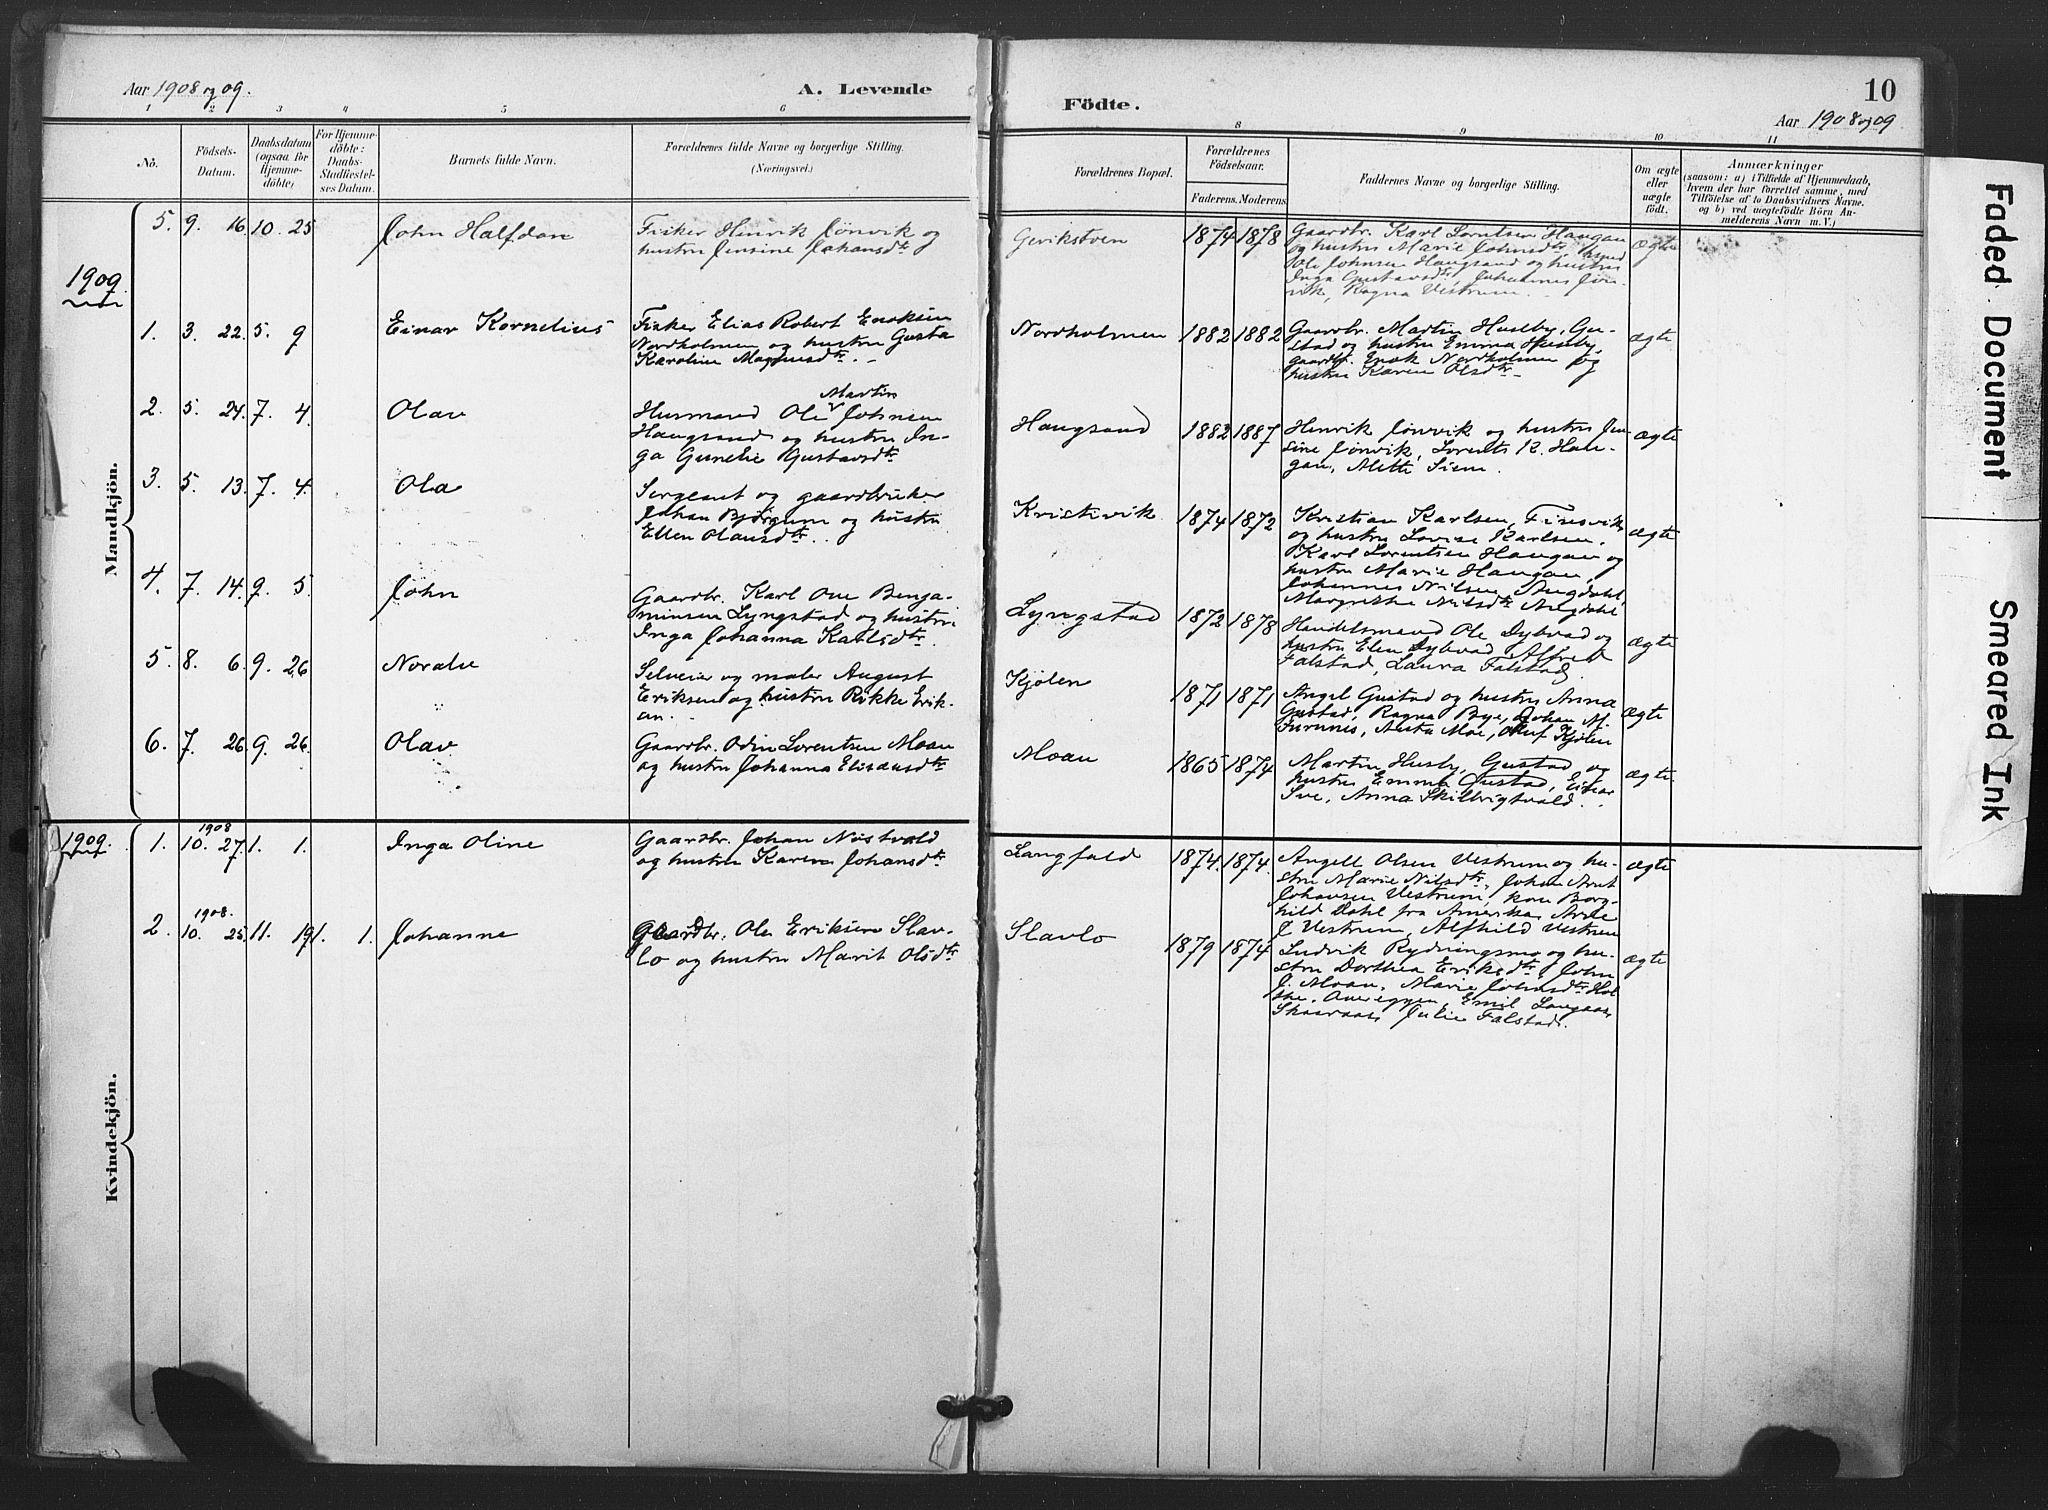 Aar 1908 og 09.
A. Levende
Födte.
10
Aar 1908 og 09
1 2 3 4 5 6 8 9 10 11
No.
Födsels-
Datum.
Daabsdatum
(ogsaa for
Hjemme-
döbte;
For Hjemme-
döbte:
Daabs-
Stadfæstel-
ses Datum.
Barnets fulde Navn.
Forældrenes fulde Navne og borgerlige Stilling.
(Næringsvei.)
Forældrenes Bopæl.
Forældrenes
Födselsaar.
Faderens. Moderens.
Faddernes Navne og borgerlige Stilling.
Om ægte
eller
uægte
født.
Anmærkninger
(saasom: a) i Tilfælde af Hjemmedaab,
hvem der har forrettet samme, med
Tilföielse af to Daabsvidners Navne.
og b) ved uegtefödte Börn An-
melderens Navn m. V.)
Mandkjön.
5. 9. 16. 10. 25 John Halfdan
Fisker Henrik Jönvik og
hustru Jensine Johansdtr
1874 1878
Gaardbr. Karl Lorntsen Haugan
og hustru Marie Johnsdtr,
Ole Johnsen Haugsand og hustru
Inga Gustavsdtr, Johannes Jön-
vik, Ragna Vestrum.
ægte
1909.
1. 3. 22. 5. 9 Einar Kornelius
Fisker Elias Robert Enoksen
Nordholmen og hustru Gusta
Karoline Magnusdtr.
Nordholmen
1882 1882
Gaardbr. Martin Huseby, Gu-
stad og hustru Emma Huseby,
gaardbr. Enok Nordholmen og
hustru Karen Olsdtr
ægte
2. 5. 24. 7. 4. Olav
Martin
Husmand Ole Johnsen
Haugsand og hustru In-
ga Gunelie Gustavsdtr
Haugsand
1882 1887
Henrik Jönvik og hustru Jen-
sine Jönvik, Lorents K. Hau-
gan, Mette Siem.
ægte
3. 5. 13. 7. 4. Ola
Sergeant og gaardbruker
Johan Bjørgum og hustru
Ellen Olausdtr.
Kristivik
1874 1872
Kristian Karlsen, Finsvik
og hustru Lovise Karlsen,
Karl Lorentsen Haugan og
hustru Marie Haugan,
Johannes Nilsen Angdahl,
Margrethe Nilsdtr Angdahl
ægte
4. 7. 14. 9. 5. John
Gaardbr. Karl Ove Benja-
minsen Lyngstad og hustru
Inga Johanna Karlsdtr.
Lyngstad
1872 1878
Handelsmand Ole Dybvad og
hustru Elen Dybvad, Alfred
Falstad, Laura Falstad
ægte
5. 8. 6. 9. 26
Selveier og maler August
Eriksen og hustru Rikke Erik-
Kjölen
1871 1871
Angel Gustad og hustru Anna
Gustad, Ragna Bye, Johan M.
Furunes, Asta Moe, Oluf Kjölen
ægte
6. 7. 26. 9. 26. Olav
Gaardbr. Odin Lorentsen Moan
og hustru Johanna Elisæusdtr
Moan
1865 1874
Martin Husby, Gustad, og
hustru Emma Gustad, Einar
Sve, Anna Skillrigtvald.
ægte.
Kvindekjön.
1909.
1908
1. 10. 27. 1. 1. Inga Oline
Gaardbr. Johan Nöstvald
og hustru Karen Johansdtr
Langfald
1874. 1874.
Angell Olsen Vestrum og hu-
stru Marie Nilsdtr, Johan Arnt
Johansen Vestrum, kone Borg-
hild Dahl fra Amerika, Arne
J. Vestrum, Alfhild Vestrum
ægte
1908.
2. 10. 25. 11. 19. 1. 1. Johanne
Gaardbr. Ole Eriksen Slav-
lo og hustru Marit Olsdtr
Slavlo
1879 1874
Ludvik Rydningsmo og hu-
stru Dorthea Eriksdtr, John
J. Moan, Marie Johnsdtr Hol-
Emil Langaas
Skaanaas, Julie Falstad.
ægte
Faded Document
Smeared Ink